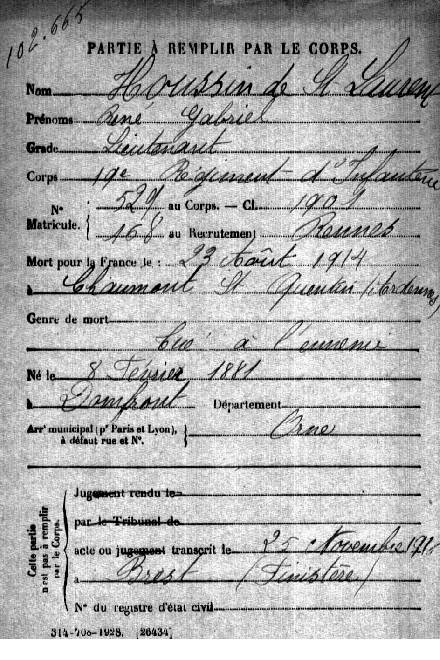 102.665
PARTIE À REMPLIR PAR LE CORPS.
Nom Houssin de St Laurent
Prénoms René Gabriel
Grade Lieutenant
Corps 19e Régiment d'Infanterie
N° Matricule. 529 au Corps. — Cl. 1901
168 au Recrutement Rennes
Mort pour la France le : 23 Août 1914
à Chaumont St Quentin (Ardennes)
Genre de mort
tué à l'ennemi
Né le 8 Février 1881
à Domfront Département
Arrt municipal (pr Paris et Lyon), à défaut rue et N°. Orne
Cette partie n'est pas à remplir par le Corps.
Jugement rendu le
par le Tribunal de
acte ou jugement transcrit le 25 Novembre
à Brest (Finistère)
N° du registre d'état civil
314-708-1923. [26434]